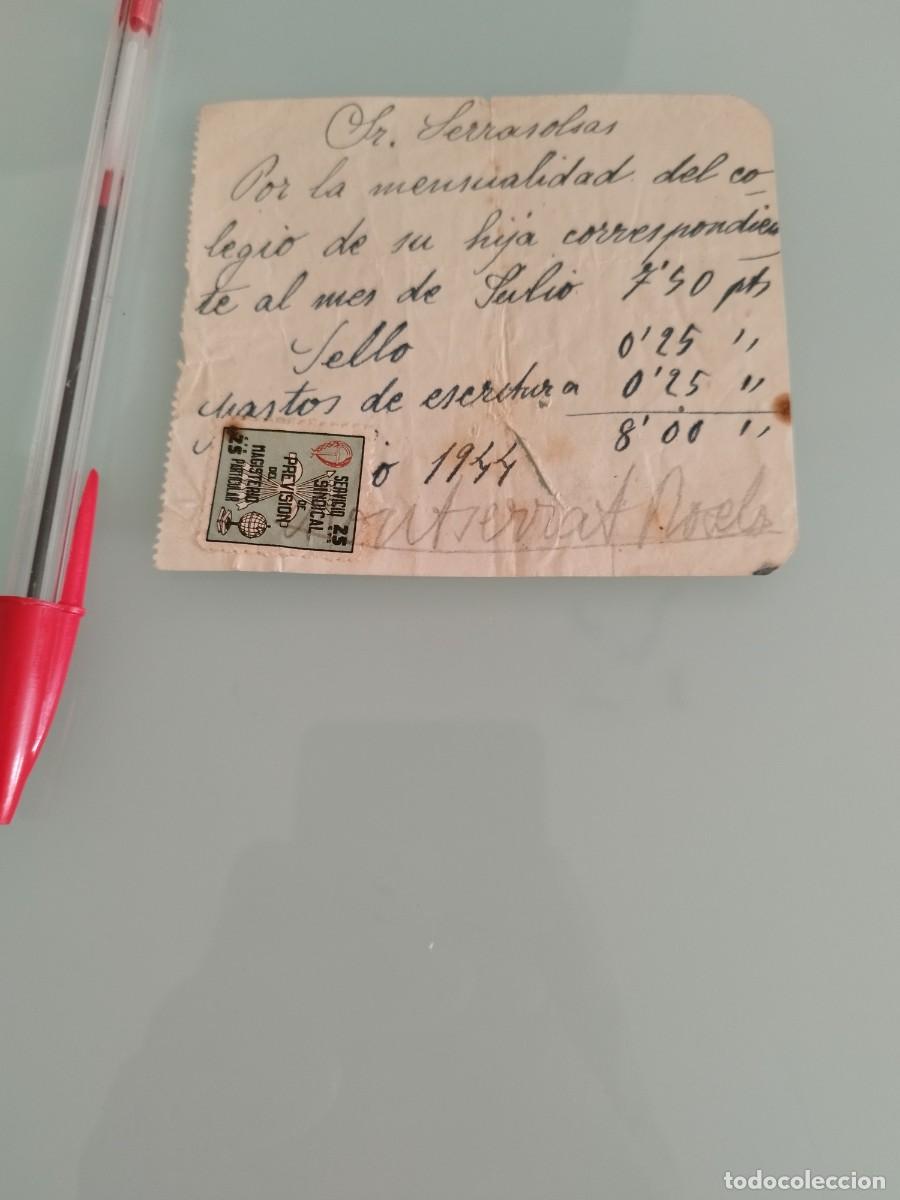 Sr. Serrasolsas
Por la mensualidad del co-
legio de su hija correspondien
te al mes de Julio 7'50 pts
Sello 0'25 "
Gastos de escritura 0'25 "
8'00 "
io 1944
Montserrat
SERVICIO 25 CTS
SINDICAL
DE
PREVISION
DEL
MAGISTERIO
CTS 25 PARTICULAR
todocoleccion